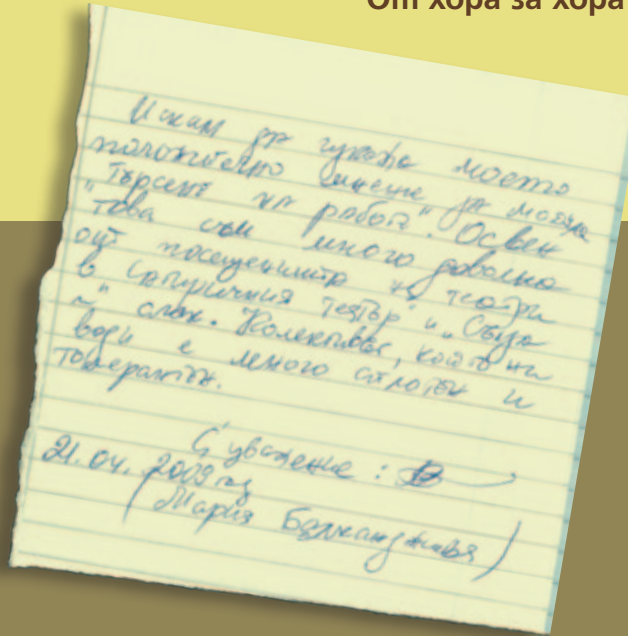 От хора за хора
Искам да изкажа моето
положително мнение за модула
"Търсене на работа". Освен
това съм много доволна
от посещенията на театри
в "Сатиричния театър" и
Колективът, който ни
води е много сплотен и
толерантен.
С уважение:
21.04.2009 г.
(Мария